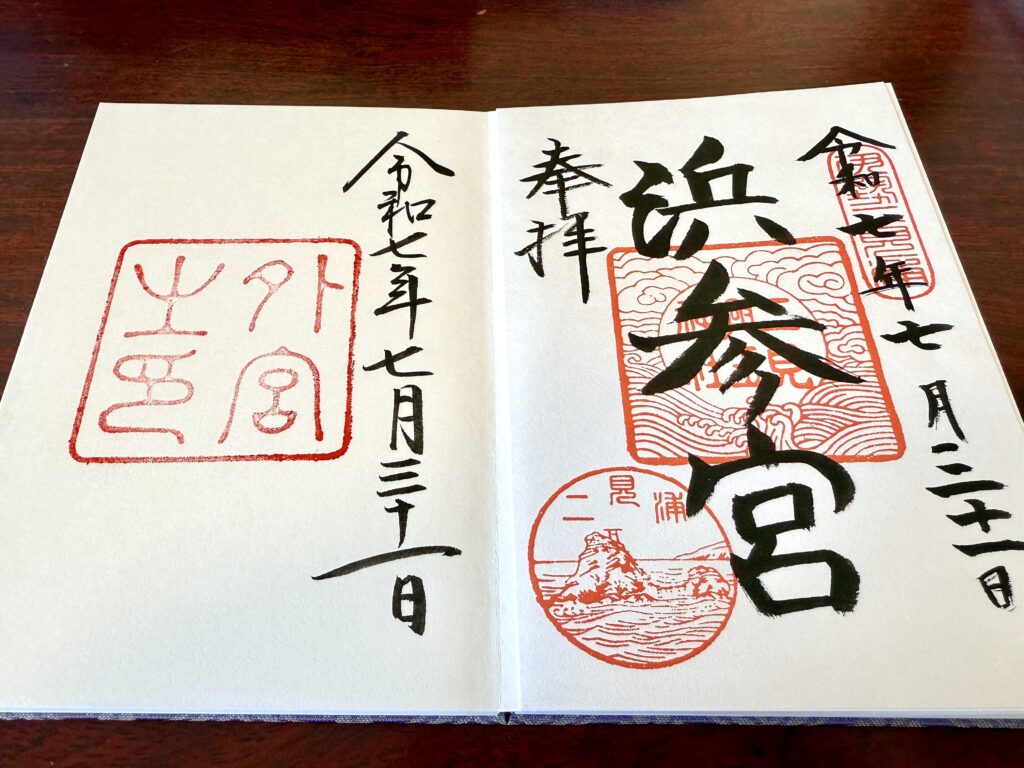 令和七年七月三十一日
浜参宮
奉拝
二見浦
令和七年七月三十一日
外宮
之印